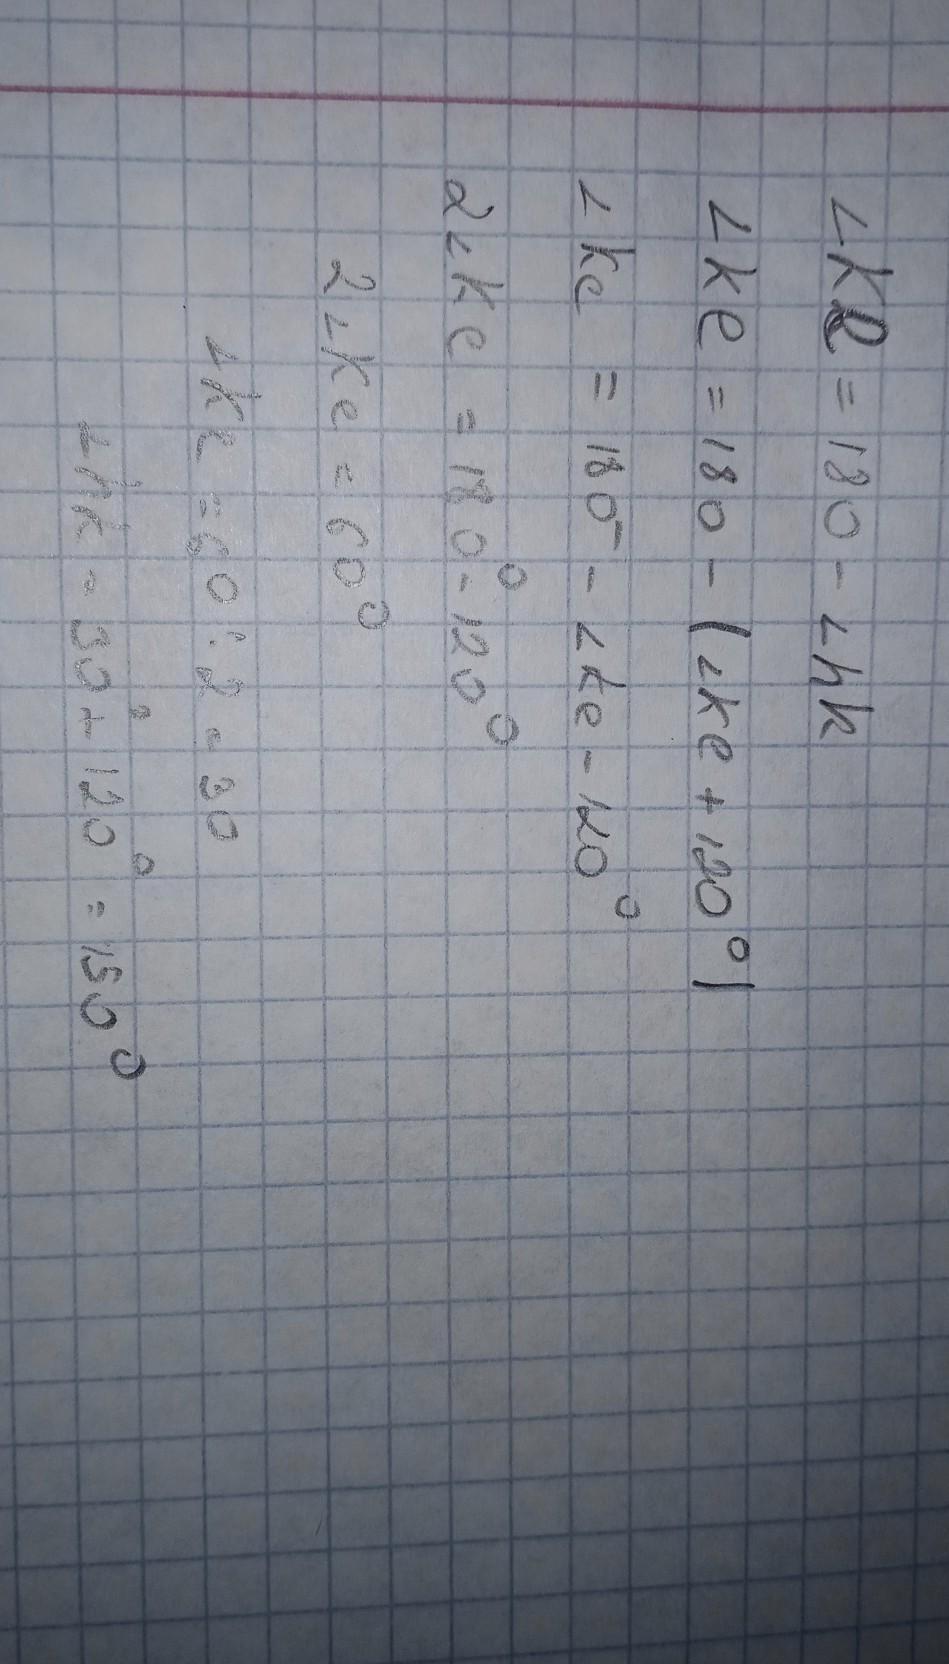 ∠ke = 180 - ∠hk
∠ke = 180 - (∠ke + 120°)
∠ke = 180° - ∠ke - 120°
2∠ke = 180° - 120°
2∠ke = 60°
∠ke = 60 : 2 = 30
∠hk = 30° + 120° = 150°